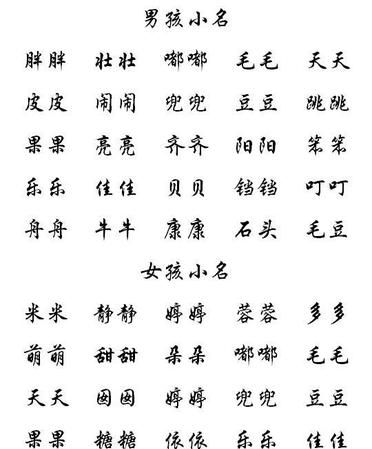 男孩小名
胖胖 壮壮 嘟嘟 毛毛 天天
皮皮 闹闹 兜兜 豆豆 跳跳
果果 亮亮 齐齐 阳阳 笨笨
乐乐 佳佳 贝贝 铛铛 叮叮
舟舟 牛牛 康康 石头 毛豆
女孩小名
米米 静静 婷婷 蓉蓉 多多
萌萌 甜甜 朵朵 嘟嘟 毛毛
天天 囡囡 婷婷 兜兜 豆豆
果果 糖糖 依依 乐乐 佳佳